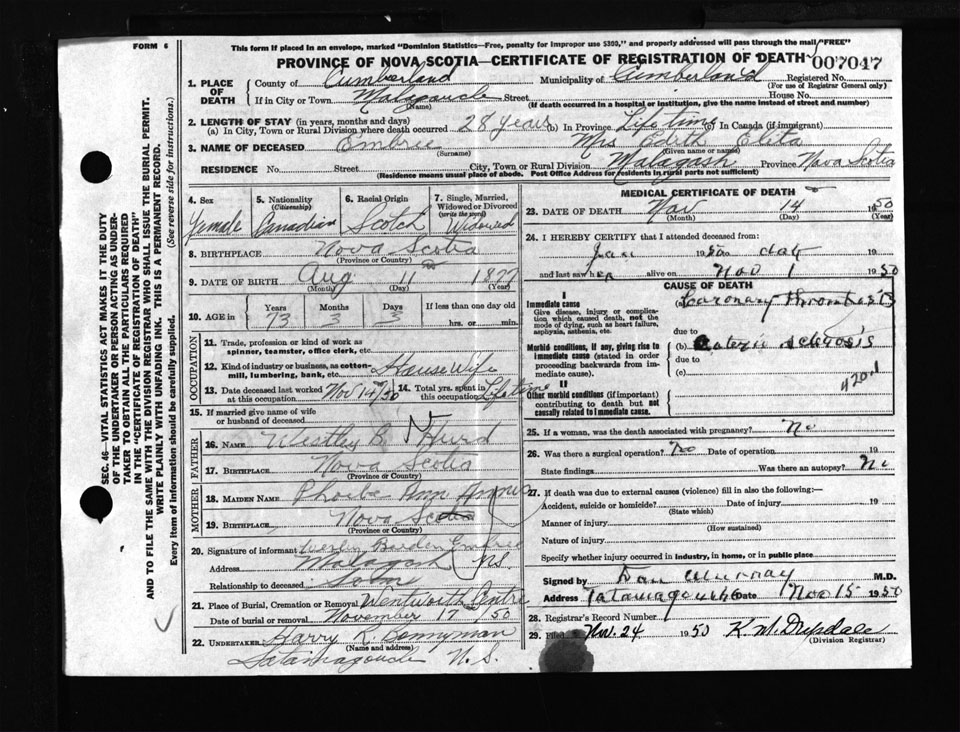 FORM 6
This form if placed in an envelope, marked "Dominion Statistics—Free, penalty for improper use $300," and properly addressed will pass through the mail "FREE"
PROVINCE OF NOVA SCOTIA—CERTIFICATE OF REGISTRATION OF DEATH
007047
1. PLACE OF DEATH
County of Cumberland Municipality of Cumberland Registered No.
(For use of Registrar General only)
If in City or Town Street House No.
(Name) (If death occurred in a hospital or institution, give the name instead of street and number)
2. LENGTH OF STAY (in years, months and days)
(a) In City, Town or Rural Division where death occurred 28 years (b) In Province Lifetime (c) In Canada (if immigrant)
3. NAME OF DECEASED Embree Mrs Edith
(Surname) (Given name or names)
RESIDENCE No. Street City, Town or Rural Division Malagash Province Nova Scotia
(Residence means usual place of abode. Post Office Address for residents in rural parts not sufficient)
4. Sex
Female
5. Nationality
(Citizenship)
Canadian
6. Racial Origin
Scotch
7. Single, Married, Widowed or Divorced
(write the word)
Widowed
8. BIRTHPLACE Nova Scotia
(Province or Country)
9. DATE OF BIRTH Aug 11 1877
(Month) (Day) (Year)
10. AGE in Years Months Days If less than one day old
73 3 3 hrs. or min.
OCCUPATION
11. Trade, profession or kind of work as spinner, teamster, office clerk, etc.
12. Kind of industry or business, as cotton-mill, lumbering, bank, etc. House Wife
13. Date deceased last worked at this occupation Nov 14/50
14. Total yrs. spent in this occupation Lifetime
15. If married give name of wife or husband of deceased
FATHER
16. NAME Westley B Hurd
17. BIRTHPLACE Nova Scotia
(Province or Country)
MOTHER
18. MAIDEN NAME Phoebe Ann
19. BIRTHPLACE Nova Scotia
(Province or Country)
20. Signature of informant Embree
Address Malagash N.S.
Relationship to deceased Son
21. Place of Burial, Cremation or Removal Wentworth Centre
Date of burial or removal November 17 /50
22. UNDERTAKER Harry R. Bonnyman
(Name and address)
Tatamagouche N.S.
MEDICAL CERTIFICATE OF DEATH
23. DATE OF DEATH Nov 14 1950
(Month) (Day) (Year)
24. I HEREBY CERTIFY that I attended deceased from:
Jan 1950 to 19
and last saw her alive on Nov 1 1950
CAUSE OF DEATH
I
Immediate cause
Give disease, injury or complication which caused death, not the mode of dying, such as heart failure, asphyxia, asthenia, etc.
(a) Coronary thrombosis
due to
Morbid conditions, if any, giving rise to immediate cause (stated in order proceeding backwards from immediate cause).
(b) sclerosis
due to
(c)
4201
II
Other morbid conditions (if important) contributing to death but not causally related to immediate cause.
25. If a woman, was the death associated with pregnancy? No
26. Was there a surgical operation? No Date of operation 19
State findings Was there an autopsy? No
27. If death was due to external causes (violence) fill in also the following:—
Accident, suicide or homicide? Date of injury 19
(State which)
Manner of injury
(How sustained)
Nature of injury
Specify whether injury occurred in industry, in home, or in public place
Signed by Dan Murray M.D.
Address Tatamagouche Date Nov 15 1950
28. Registrar's Record Number
29. Filed Nov. 24 1950 K.M. Drysdale
(Division Registrar)
SEC. 46—VITAL STATISTICS ACT MAKES IT THE DUTY OF THE UNDERTAKER OR PERSON ACTING AS UNDERTAKER TO OBTAIN ALL THE PARTICULARS REQUIRED IN THE "CERTIFICATE OF REGISTRATION OF DEATH" AND TO FILE THE SAME WITH THE DIVISION REGISTRAR WHO SHALL ISSUE THE BURIAL PERMIT.
WRITE PLAINLY WITH UNFADING INK. THIS IS A PERMANENT RECORD.
Every item of information should be carefully supplied. (See reverse side for instructions.)